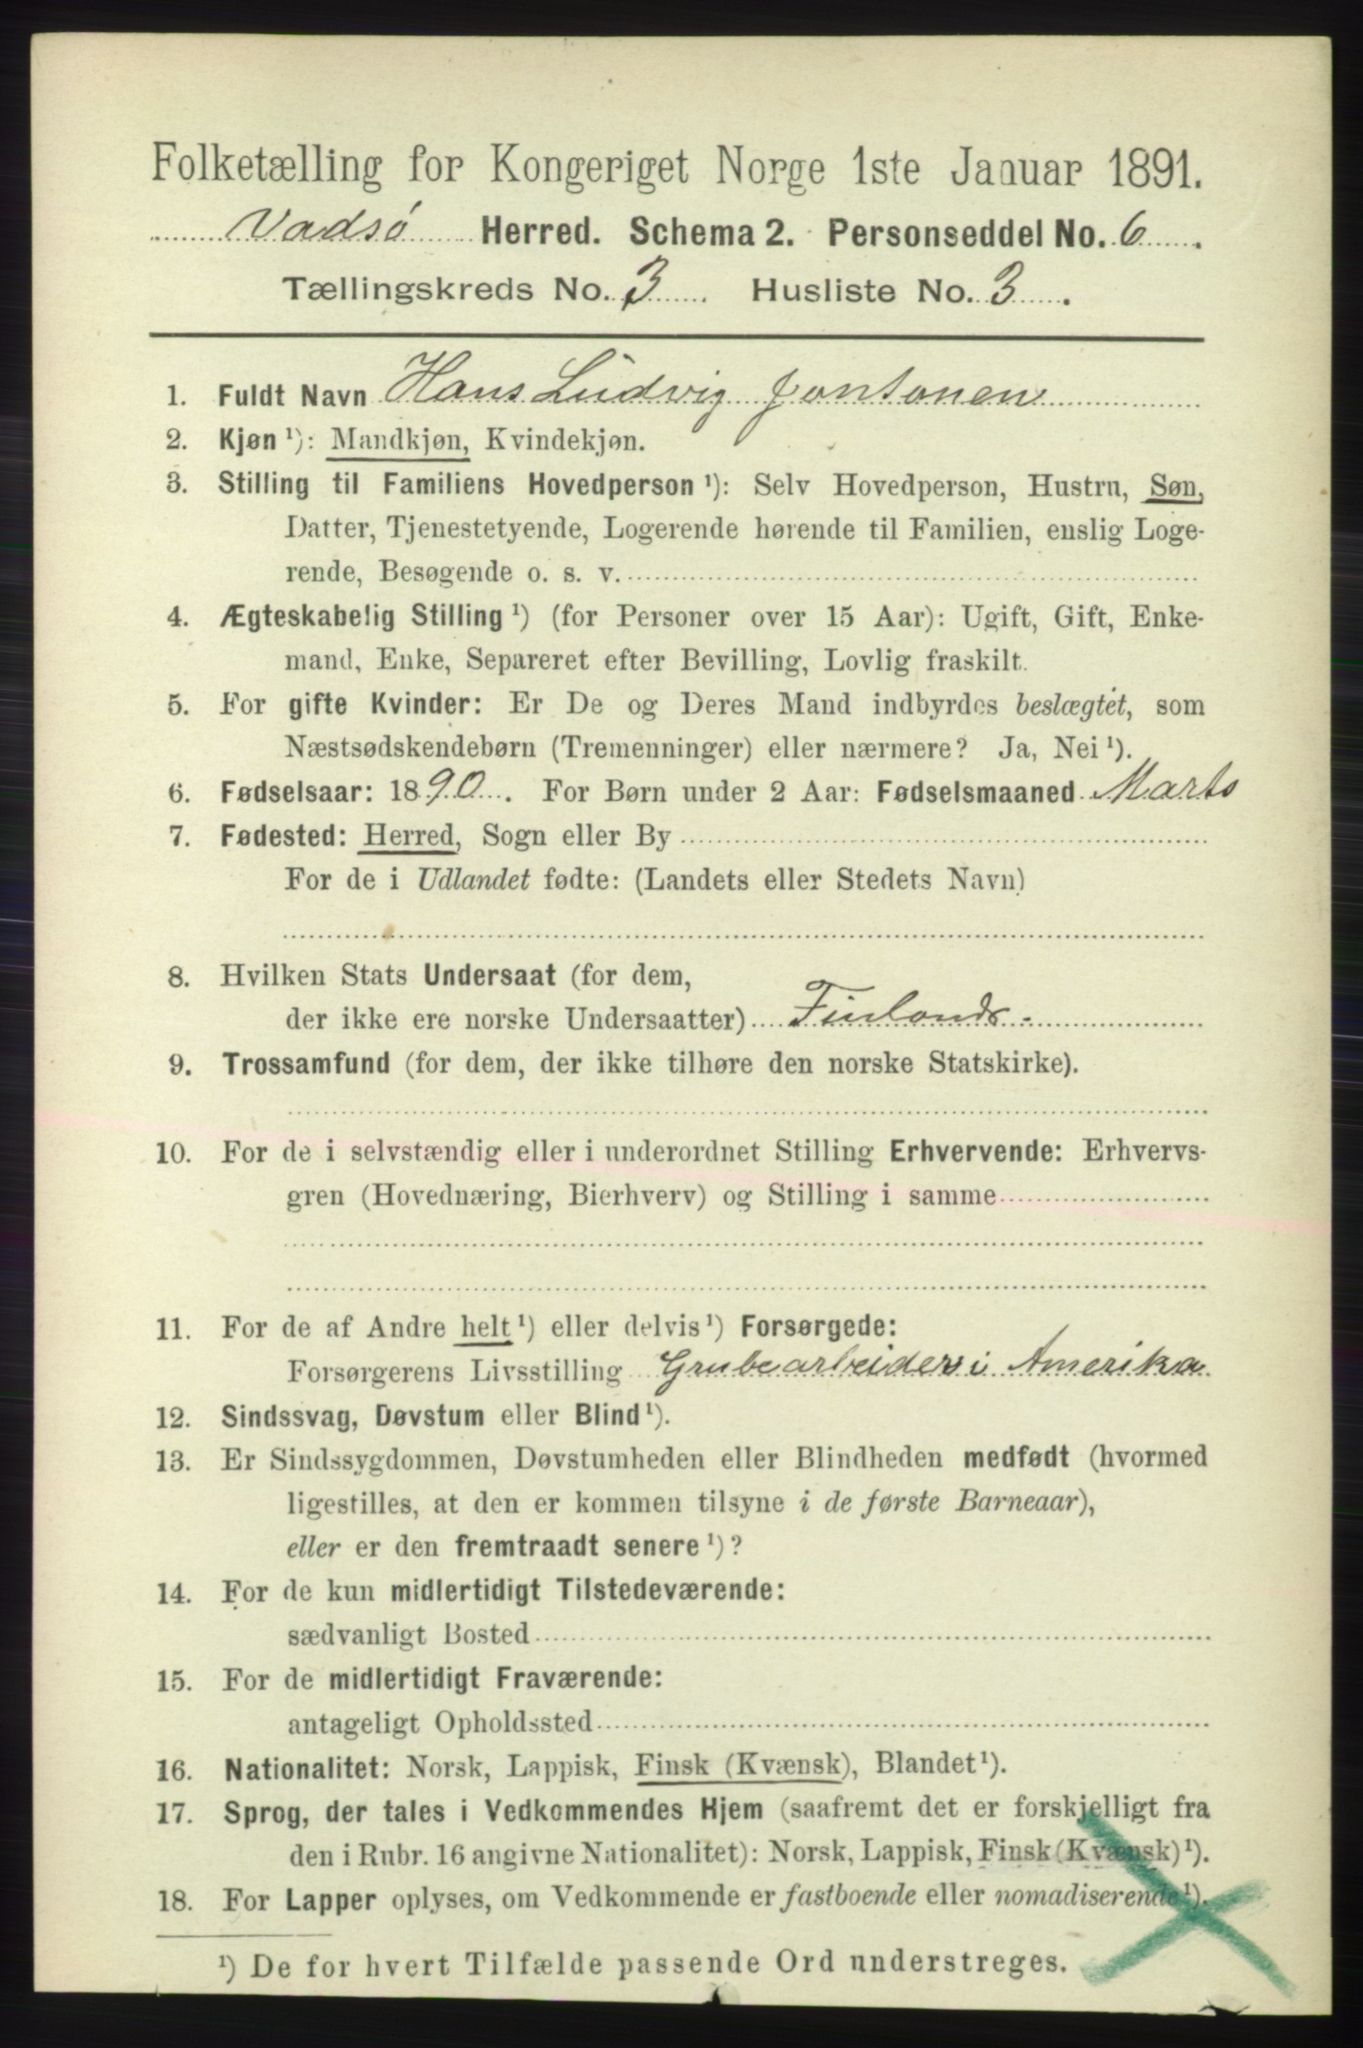 Folketælling for Kongeriget Norge 1ste Januar 1891.
Vadsø Herred. Schema 2. Personseddel No. 6.
Tællingskreds No. 3 Husliste No. 3.
1. Fuldt Navn Hans Ludvig Jontonen
2. Kjøn ¹): Mandkjøn, Kvindekjøn.
3. Stilling til Familiens Hovedperson ¹): Selv Hovedperson, Hustru, Søn,
Datter, Tjenestetyende, Logerende hørende til Familien, enslig Loge-
rende, Besøgende o. s. v.
4. Ægteskabelig Stilling ¹) (for Personer over 15 Aar): Ugift, Gift, Enke-
mand, Enke, Separeret efter Bevilling, Lovlig fraskilt.
5. For gifte Kvinder: Er De og Deres Mand indbyrdes beslægtet, som
Næstsødskendebørn (Tremenninger) eller nærmere? Ja, Nei ¹).
6. Fødselsaar: 1890. For Børn under 2 Aar: Fødselsmaaned Marts
7. Fødested: Herred, Sogn eller By
For de i Udlandet fødte: (Landets eller Stedets Navn)
8. Hvilken Stats Undersaat (for dem,
der ikke ere norske Undersaatter) Finlands.
9. Trossamfund (for dem, der ikke tilhøre den norske Statskirke).
10. For de i selvstændig eller i underordnet Stilling Erhvervende: Erhvervs-
gren (Hovednæring, Bierhverv) og Stilling i samme
11. For de af Andre helt ¹) eller delvis ¹) Forsørgede:
Forsørgerens Livsstilling Grubearbeider i Amerika
12. Sindssvag, Døvstum eller Blind ¹).
13. Er Sindssygdommen, Døvstumheden eller Blindheden medfødt (hvormed
ligestilles, at den er kommen tilsyne i de første Barneaar),
eller er den fremtraadt senere ¹)?
14. For de kun midlertidigt Tilstedeværende:
sædvanligt Bosted
15. For de midlertidigt Fraværende:
antageligt Opholdssted
16. Nationalitet: Norsk, Lappisk, Finsk (Kvænsk), Blandet ¹).
17. Sprog, der tales i Vedkommendes Hjem (saafremt det er forskjelligt fra
den i Rubr. 16 angivne Nationalitet): Norsk, Lappisk, Finsk (Kvænsk) ¹).
18. For Lapper oplyses, om Vedkommende er fastboende eller nomadiserende ¹).
¹) De for hvert Tilfælde passende Ord understreges.